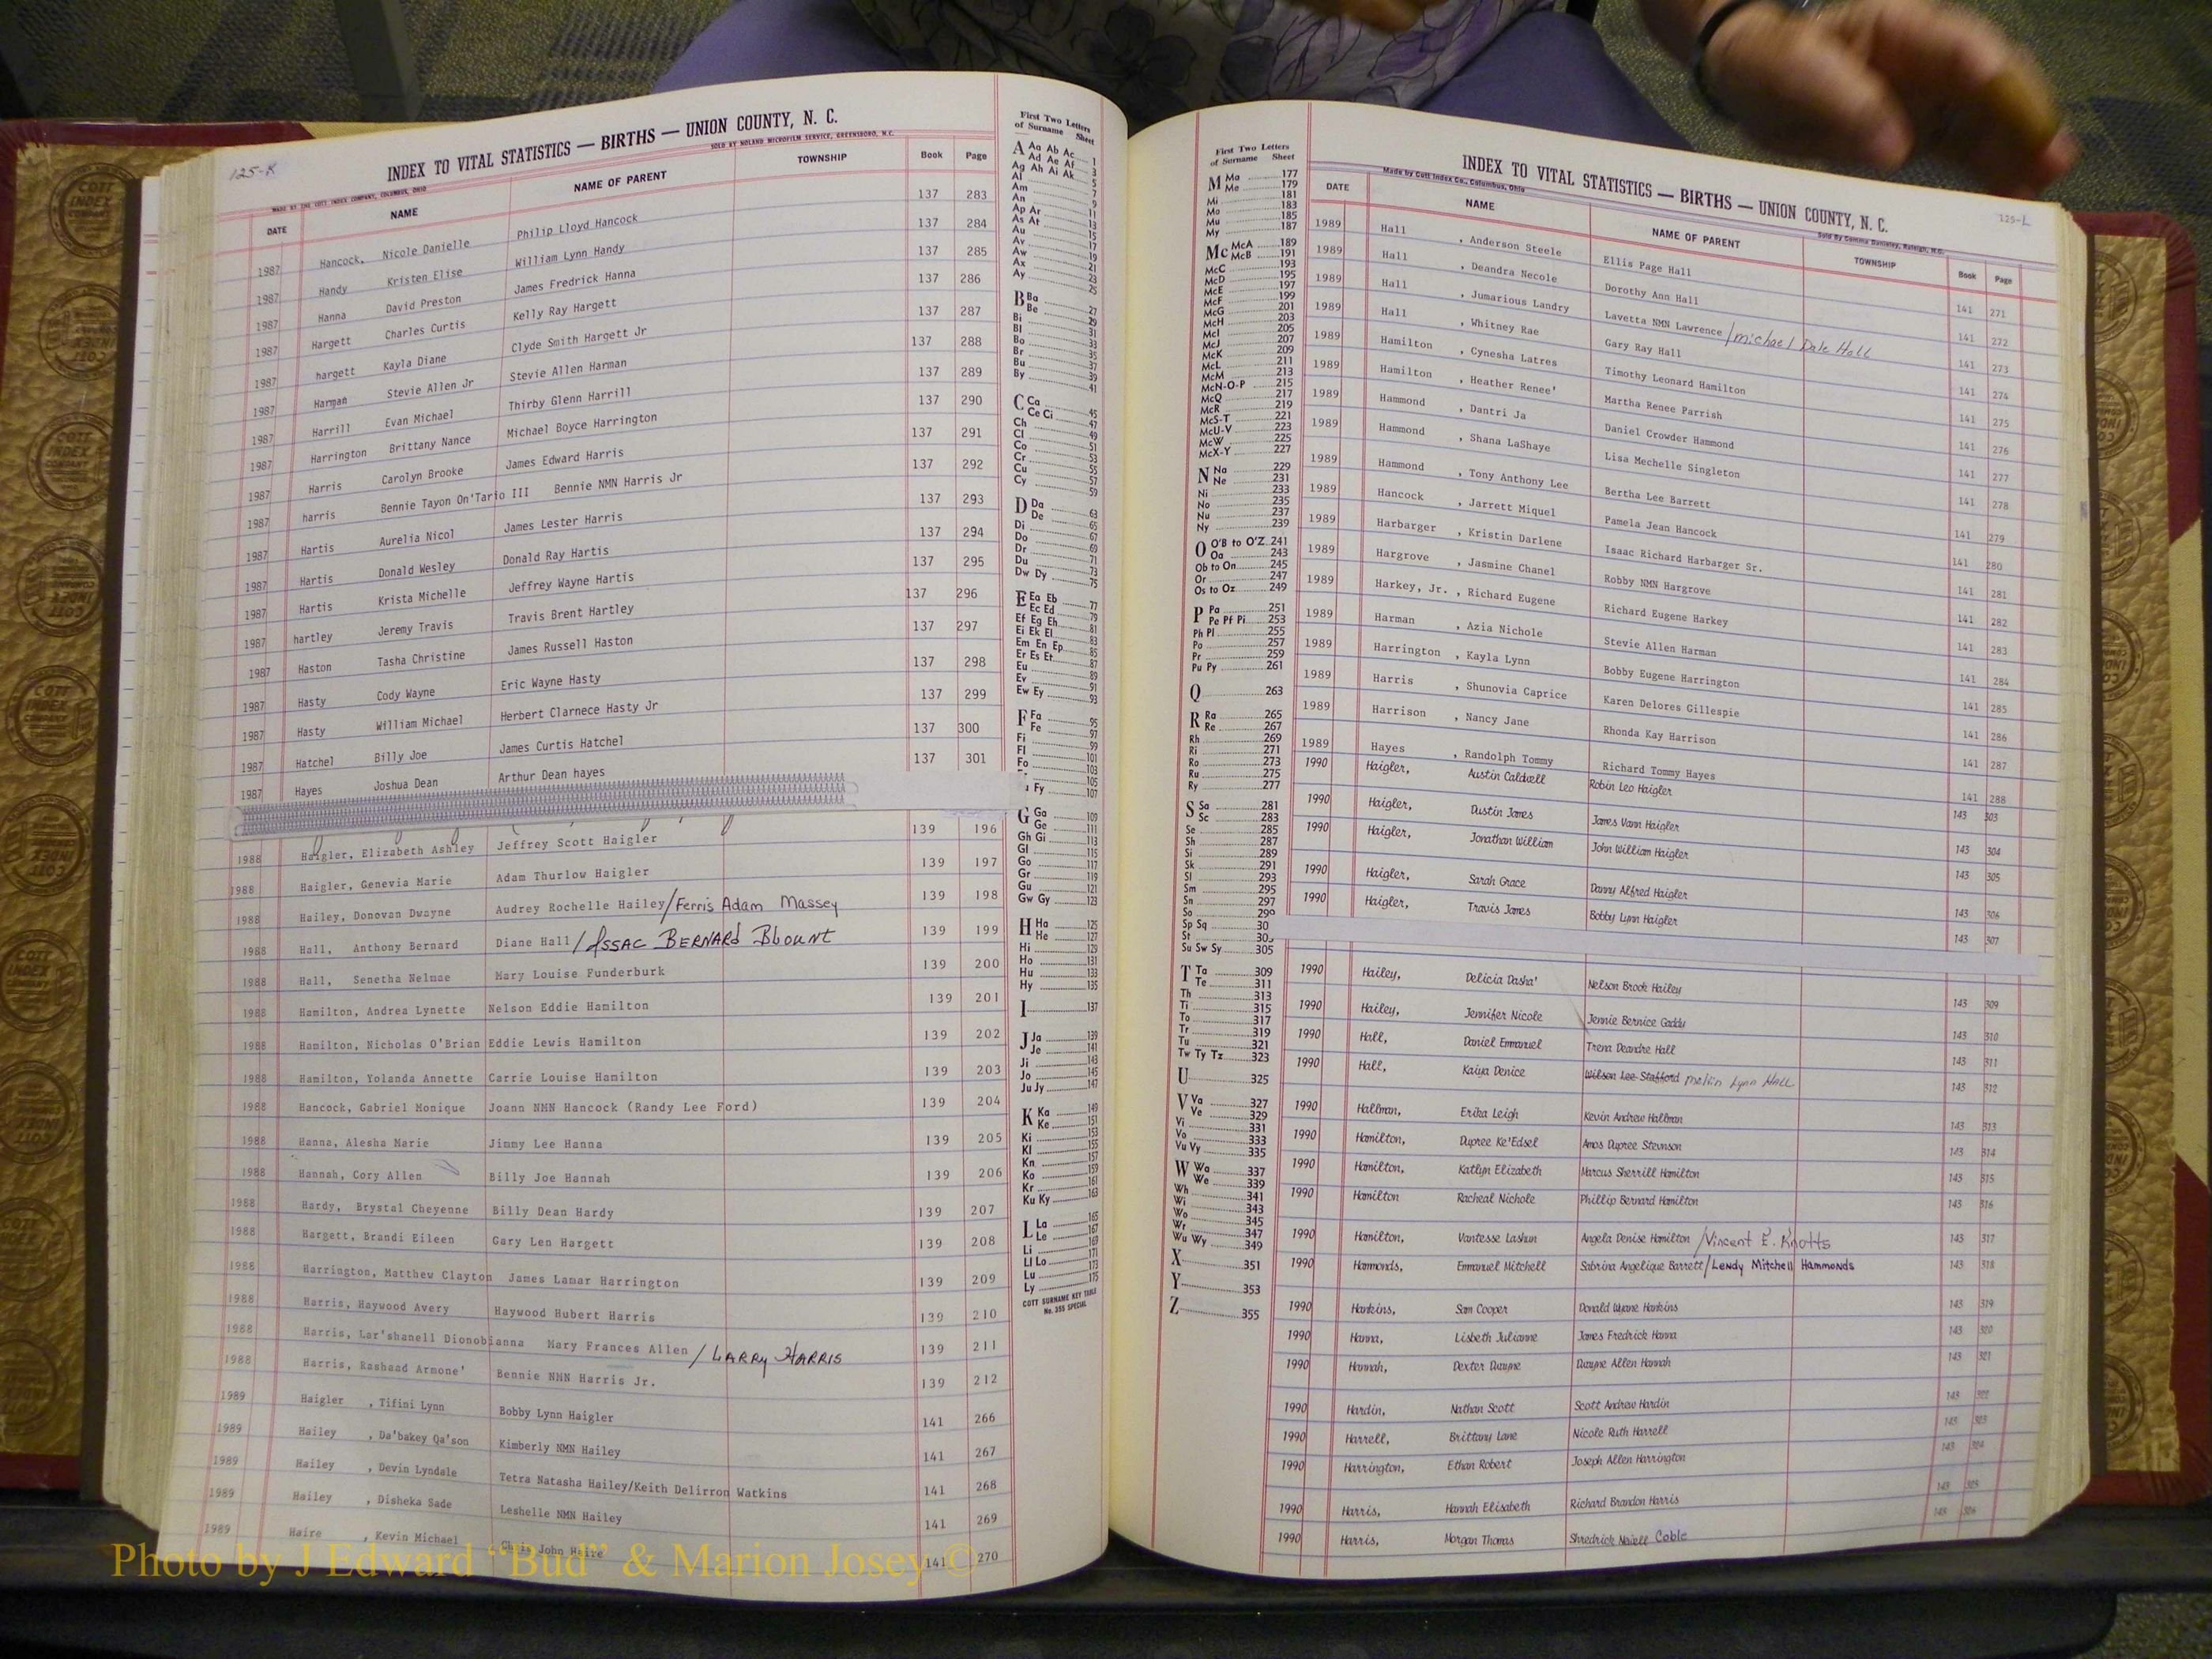 125-K
INDEX TO VITAL STATISTICS — BIRTHS — UNION COUNTY, N. C.
MADE BY THE COTT INDEX COMPANY, COLUMBUS, OHIO SOLD BY NOLAND MICROFILM SERVICE, GREENSBORO, N.C.
DATE NAME NAME OF PARENT TOWNSHIP Book Page
1987 Hancock, Nicole Danielle Philip Lloyd Hancock 137 283
1987 Handy Kristen Elise William Lynn Handy 137 284
1987 Hanna David Preston James Fredrick Hanna 137 285
1987 Hargett Charles Curtis Kelly Ray Hargett 137 286
1987 hargett Kayla Diane Clyde Smith Hargett Jr 137 287
1987 Harman Stevie Allen Jr Stevie Allen Harman 137 288
1987 Harrill Evan Michael Thirby Glenn Harrill 137 289
1987 Harrington Brittany Nance Michael Boyce Harrington 137 290
1987 Harris Carolyn Brooke James Edward Harris 137 291
1987 harris Bennie Tayon On'Tario III Bennie NMN Harris Jr 137 292
1987 Hartis Aurelia Nicol James Lester Harris 137 293
1987 Hartis Donald Wesley Donald Ray Hartis 137 294
1987 Hartis Krista Michelle Jeffrey Wayne Hartis 137 295
1987 hartley Jeremy Travis Travis Brent Hartley 137 296
1987 Haston Tasha Christine James Russell Haston 137 297
1987 Hasty Cody Wayne Eric Wayne Hasty 137 298
1987 Hasty William Michael Herbert Clarnece Hasty Jr 137 299
1987 Hatchel Billy Joe James Curtis Hatchel 137 300
1987 Hayes Joshua Dean Arthur Dean hayes 137 301
1988 Haigler, Elizabeth Ashley Jeffrey Scott Haigler 139 196
1988 Haigler, Genevia Marie Adam Thurlow Haigler 139 197
1988 Hailey, Donovan Dwayne Audrey Rochelle Hailey/Ferris Adam Massey 139 198
1988 Hall, Anthony Bernard Diane Hall/Issac Bernard Blount 139 199
1988 Hall, Senetha Nelmae Mary Louise Funderburk 139 200
1988 Hamilton, Andrea Lynette Nelson Eddie Hamilton 139 201
1988 Hamilton, Nicholas O'Brian Eddie Lewis Hamilton 139 202
1988 Hamilton, Yolanda Annette Carrie Louise Hamilton 139 203
1988 Hancock, Gabriel Monique Joann NMN Hancock (Randy Lee Ford) 139 204
1988 Hanna, Alesha Marie Jimmy Lee Hanna 139 205
1988 Hannah, Cory Allen Billy Joe Hannah 139 206
1988 Hardy, Brystal Cheyenne Billy Dean Hardy 139 207
1988 Hargett, Brandi Eileen Gary Len Hargett 139 208
1988 Harrington, Matthew Clayton James Lamar Harrington 139 209
1988 Harris, Haywood Avery Haywood Hubert Harris 139 210
1988 Harris, Lar'shanell Dionobianna Mary Frances Allen / Larry Harris 139 211
1988 Harris, Rashaad Armone' Bennie NMN Harris Jr. 139 212
1989 Haigler , Tifini Lynn Bobby Lynn Haigler 141 266
1989 Hailey , Da'bakey Qa'son Kimberly NMN Hailey 141 267
1989 Hailey , Devin Lyndale Tetra Natasha Hailey/Keith Delirron Watkins 141 268
1989 Hailey , Disheka Sade Leshelle NMN Hailey 141 269
1989 Haire , Kevin Michael Chris John Haire 141 270
First Two Letters
of Surname Sheet
A Aa Ab Ac 1
Ad Ae Af 3
Ag Ah Ai Ak 5
Al 7
Am 9
An 11
Ap Ar 13
As At 15
Au 17
Av 19
Aw 21
Ax 23
Ay 25
B Ba 27
Be 29
Bi 31
Bl 33
Bo 35
Br 37
Bu 39
By 41
C Ca 45
Ce Ci 47
Ch 49
Cl 51
Co 53
Cr 55
Cu 57
Cy 59
D Da 63
De 65
Di 67
Do 69
Dr 71
Du 73
Dw Dy 75
E Ea Eb 77
Ec Ed 79
Ef Eg Eh 81
Ei Ek El 83
Em En Ep 85
Er Es Et 87
Eu 89
Ev 91
Ew Ey 93
F Fa 95
Fe 97
Fi 99
Fl 101
Fo 103
105
Fy 107
G Ga 109
Ge 111
Gh Gi 113
Gl 115
Go 117
Gr 119
Gu 121
Gw Gy 123
H Ha 125
He 127
Hi 129
Ho 131
Hu 133
Hy 135
I 137
J Ja 139
Je 141
Ji 143
Jo 145
Ju Jy 147
K Ka 149
Ke 151
Ki 153
Kl 155
Kn 157
Ko 159
Kr 161
Ku Ky 163
L La 165
Le 167
Li 169
Ll Lo 171
Lu 173
Ly 175
COTT SURNAME KEY TABLE
No. 355 SPECIAL
First Two Letters
of Surname Sheet
M Ma 177
Me 179
Mi 181
Mo 183
Mu 185
My 187
Mc McA 189
McB 191
McC 193
McD 195
McE 197
McF 199
McG 201
McH 203
McI 205
McJ 207
McK 209
McL 211
McM 213
McN-O-P 215
McQ 217
McR 219
McS-T 221
McU-V 223
McW 225
McX-Y 227
N Na 229
Ne 231
Ni 233
No 235
Nu 237
Ny 239
O O'B to O'Z 241
Oa 243
Ob to On 245
Or 247
Os to Oz 249
P Pa 251
Pe Pf Pi 253
Ph Pl 255
Po 257
Pr 259
Pu Py 261
Q 263
R Ra 265
Re 267
Rh 269
Ri 271
Ro 273
Ru 275
Ry 277
S Sa 281
Sc 283
Se 285
Sh 287
Si 289
Sk 291
Sl 293
Sm 295
Sn 297
So 299
Sp Sq 30
St 30
Su Sw Sy 305
T Ta 309
Te 311
Th 313
Ti 315
To 317
Tr 319
Tu 321
Tw Ty Tz 323
U 325
V Va 327
Ve 329
Vi 331
Vo 333
Vu Vy 335
W Wa 337
We 339
Wh 341
Wi 343
Wo 345
Wr 347
Wu Wy 349
X 351
Y 353
Z 355
125-L
INDEX TO VITAL STATISTICS — BIRTHS — UNION COUNTY, N. C.
Made by Cott Index Co., Columbus, Ohio
DATE NAME NAME OF PARENT TOWNSHIP Book Page
1989 Hall , Anderson Steele Ellis Page Hall 141 271
1989 Hall , Deandra Necole Dorothy Ann Hall 141 272
1989 Hall , Jumarious Landry Lavetta NMN Lawrence /michael Dale Hall 141 273
1989 Hall , Whitney Rae Gary Ray Hall 141 274
1989 Hamilton , Cynesha Latres Timothy Leonard Hamilton 141 275
1989 Hamilton , Heather Renee' Martha Renee Parrish 141 276
1989 Hammond , Dantri Ja Daniel Crowder Hammond 141 277
1989 Hammond , Shana LaShaye Lisa Mechelle Singleton 141 278
1989 Hammond , Tony Anthony Lee Bertha Lee Barrett 141 279
1989 Hancock , Jarrett Miquel Pamela Jean Hancock 141 280
1989 Harbarger , Kristin Darlene Isaac Richard Harbarger Sr. 141 281
1989 Hargrove , Jasmine Chanel Robby NMN Hargrove 141 282
1989 Harkey, Jr. , Richard Eugene Richard Eugene Harkey 141 283
1989 Harman , Azia Nichole Stevie Allen Harman 141 284
1989 Harrington , Kayla Lynn Bobby Eugene Harrington 141 285
1989 Harris , Shunovia Caprice Karen Delores Gillespie 141 286
1989 Harrison , Nancy Jane Rhonda Kay Harrison 141 287
1989 Hayes , Randolph Tommy Richard Tommy Hayes 141 288
1990 Haigler, Austin Caldwell Robin Leo Haigler 143 303
1990 Haigler, Dustin James James Vann Haigler 143 304
1990 Haigler, Jonathan William John William Haigler 143 305
1990 Haigler, Sarah Grace Danny Alfred Haigler 143 306
1990 Haigler, Travis James Bobby Lynn Haigler 143 307
1990 Hailey, Delicia Dasha' Nelson Brock Hailey 143 309
1990 Hailey, Jennifer Nicole Jennie Bernice Gaddy 143 310
1990 Hall, Daniel Emmanuel Trena Deandre Hall 143 311
1990 Hall, Kaiya Denice Wilson Lee Stafford melvin Lynn Hall 143 312
1990 Hallman, Erika Leigh Kevin Andrew Hallman 143 313
1990 Hamilton, Dupree Ke'Edsel Amos Dupree Stevnson 143 314
1990 Hamilton, Katlyn Elizabeth Marcus Sherrill Hamilton 143 315
1990 Hamilton Racheal Nichole Phillip Bernard Hamilton 143 316
1990 Hamilton, Vantesse Lashun Angela Denise Hamilton /Vincent E. Knotts 143 317
1990 Hammonds, Emmanuel Mitchell Sabrina Angelique Barrett/Lendy Mitchell Hammonds 143 318
1990 Hankins, Sam Cooper Donald Wyane Hankins 143 319
1990 Hanna, Lisbeth Julianne James Fredrick Hanna 143 320
1990 Hannah, Dexter Dwayne Dwayne Allen Hannah 143 321
1990 Hardin, Nathan Scott Scott Andrew Hardin 143 322
1990 Harrell, Brittany Lane Nicole Ruth Harrell 143 323
1990 Harrington, Ethan Robert Joseph Allen Harrington 143 324
1990 Harris, Hannah Elisabeth Richard Brandon Harris 143 325
1990 Harris, Morgan Thomas Shredrick Coble 143 326
Photo by J Edward “Bud” & Marion Josey ©